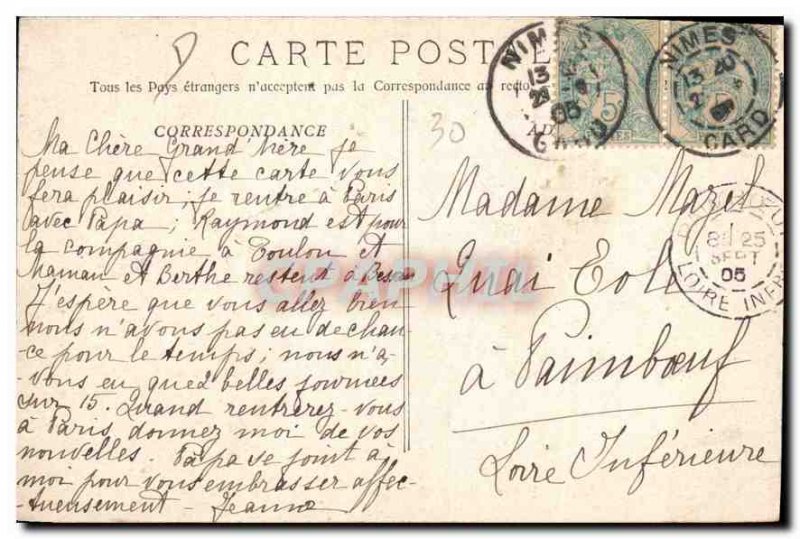 CARTE POSTALE
Tous les Pays étrangers n'acceptent pas la Correspondance au recto
CORRESPONDANCE
Ma Chère Grand' Mère je
pense que cette carte vous
fera plaisir; je rentre à Paris
avec Papa; Raymond est pour
la compagnie à Toulon et
Maman et Berthe restent à
J'espère que vous allez bien
nous n'avons pas eu de chan-
-ce pour le temps; nous n'a-
-vons eu que 2 belles journées
sur 15. Quand rentrerez-vous
à Paris, donnez moi de vos
nouvelles. Papa se joint à
moi pour vous embrasser affec-
-tueusement - Jeanne
30
NIMES
13
05
GARD
5
NIMES
13
GARD
Madame Mazet
Quai Eole
à Paimbœuf
Loire Inférieure
25
SEPT
05
LOIRE INFRE
CPAPHIL